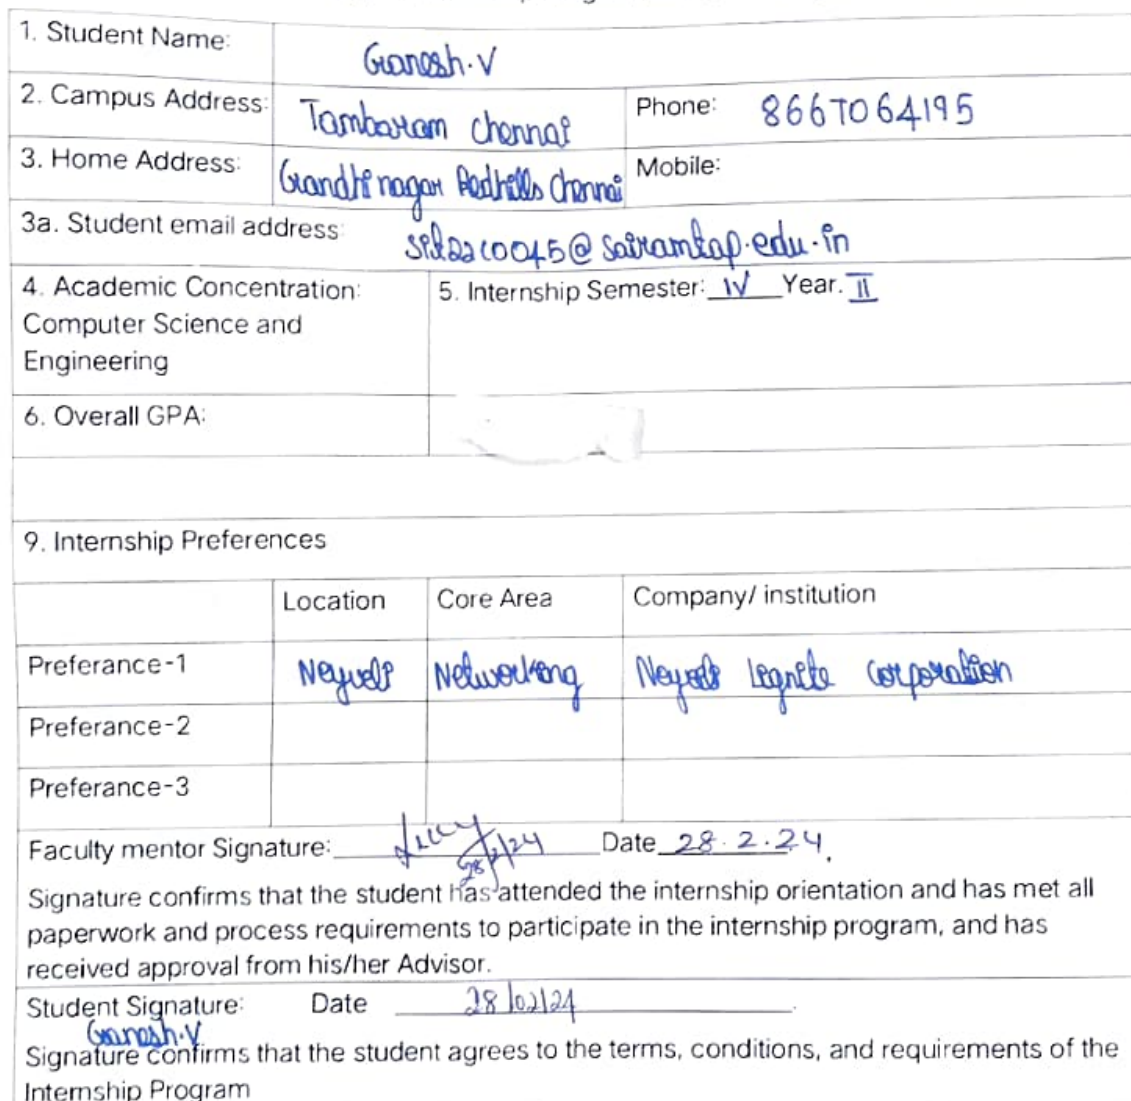 1. Student Name: Ganesh.V
2. Campus Address: Tambaram chennai Phone: 8667064195
3. Home Address: Gandhi nagar Redhills Chennai Mobile:
3a. Student email address: @sairamtap.edu.in
4. Academic Concentration: 5. Internship Semester: IV Year. II
Computer Science and
Engineering
6. Overall GPA:
9. Internship Preferences
Location Core Area Company/ institution
Preferance-1 Neyveli Networking Neyveli Lignite Corporation
Preferance-2
Preferance-3
Faculty mentor Signature: 28/2/24 Date 28.2.24.
Signature confirms that the student has attended the internship orientation and has met all
paperwork and process requirements to participate in the internship program, and has
received approval from his/her Advisor.
Student Signature: Date 28/02/24
Ganesh.V
Signature confirms that the student agrees to the terms, conditions, and requirements of the
Internship Program